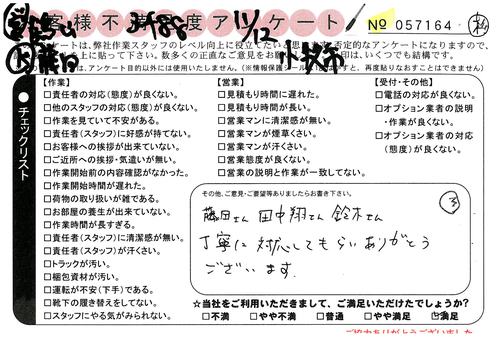 お客様不満足度アンケート
11/12
No 057164
ケートは、弊社作業スタッフのレベル向上に役立てたいと思います。否定的なアンケートになりますので、
は、アンケート目的以外には使用いたしません。（※情報保護シール
【作業】
□責任者の対応（態度）が良くない。
□他のスタッフの対応（態度）が良くない。
□作業を見ていて不安がある。
□責任者（スタッフ）に好感が持てない。
□お客様への挨拶が出来ていない。
□ご近所への挨拶・気遣いが無い。
□作業開始前の内容確認がなかった。
□作業開始時間が遅れた。
□荷物の取り扱いが雑である。
□お部屋の養生が出来ていない。
□作業時間が長すぎる。
□責任者（スタッフ）に清潔感が無い。
□責任者（スタッフ）が汗くさい。
□トラックが汚い。
□梱包資材が汚い。
□運転が不安（下手）である。
□靴下の履き替えをしてない。
□スタッフにやる気がみられない。
【営業】
□見積もり時間に遅れた。
□見積もり時間が長い。
□営業マンに清潔感が無い。
□営業マンが煙草くさい。
□営業マンが汗くさい。
□営業態度が良くない。
□営業の説明と作業が一致してない。
【受付・その他】
□電話の対応が良くない。
□オプション業者の説明
・作業が良くない。
□オプション業者の対応
（態度）が良くない。
●チェックリスト
その他、ご意見・ご要望等ありましたらお書き下さい。
③
藤田さん 田中翔さん 鈴木さん
丁寧に対応してもらいありがとう
ございます。
☆当社をご利用いただきまして、ご満足いただけたでしょうか?
□不満 □やや不満 □普通 □やや満足 ☑満足
ご協力ありがとうございました